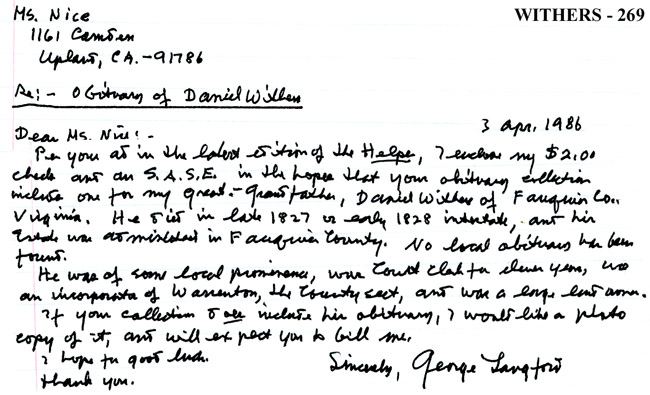 Ms. Nice
WITHERS - 269
1161 Camden
Upland, CA. - 91786
Re: - Obituary of Daniel Withers
3 Apr, 1986
Dear Ms. Nice: -
Per your ad in the latest edition of the Helper, I enclose my $2.00
check and an S.A.S.E. in the hopes that your obituary collection
include one for my great-grandfather, Daniel Withers of Fauquier Co.,
Virginia. He died in late 1827 or early 1828 intestate, and his
estate was administered in Fauquier County. No local obituary has been
found.
He was of some local prominence, was Court Clerk for eleven years, was
an incorporator of Warrenton, the County seat, and was a large land owner.
If your collection does include his obituary, I would like a photo
copy of it, and will expect you to bill me.
I hope for good luck.
Thank you.
Sincerely, George Langford